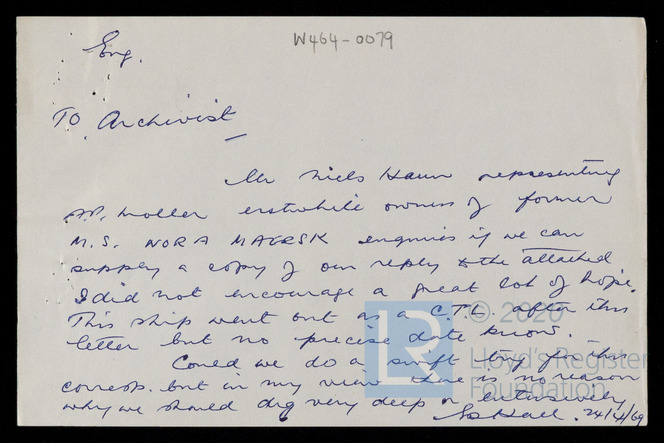 W464-0079
Eng.
To Archivist
Mr Niels Haun representing
A.P. Moller erstwhile owners of former
M.S. NORA MAERSK enquires if we can
supply a copy of our reply to the attached
I did not encourage a great lot of hope.
This ship went out as a C.T.L. after this
letter but no precise date know.
Could we do a swift try for this
corresp. but in my view there is no reason
why we should dig very deep or extensively
Hall. 24/4/69
© 2020
LR
Lloyd's Register
Foundation